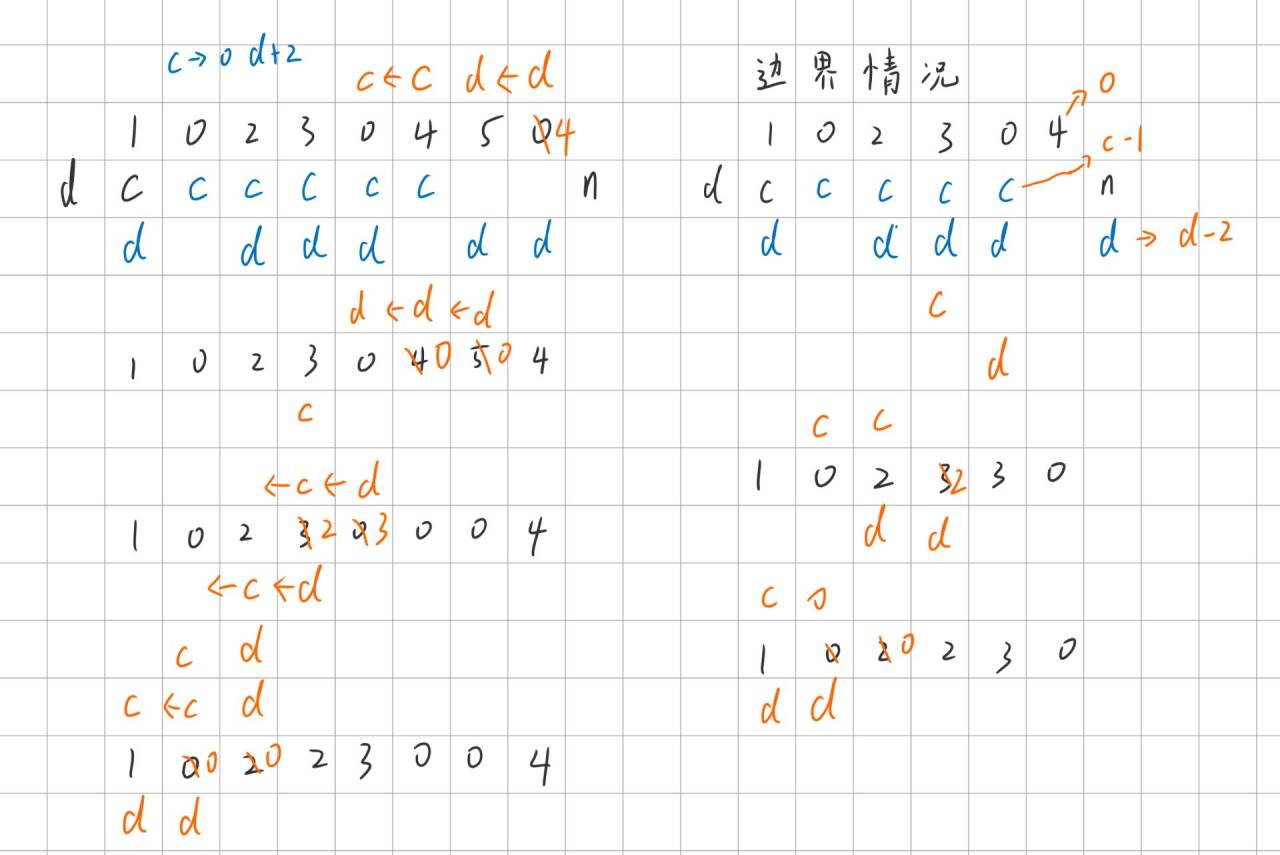 c→0 d+2
c←c d←d
1 0 2 3 0 4 5 0 4
d c c c c c c n
d d d d d d
d←d←d
1 0 2 3 0 4 0 5 0 4
c
←c←d
1 0 2 3 2 0 3 0 0 4
←c←d
c d
c←c d
1 0 0 2 0 2 3 0 0 4
d d
边界情况
0
1 0 2 3 0 4
c-1
d c c c c c n
d d d d d → d-2
c
d
c c
1 0 2 3 2 3 0
d d
c
1 0 2 0 2 3 0
d d